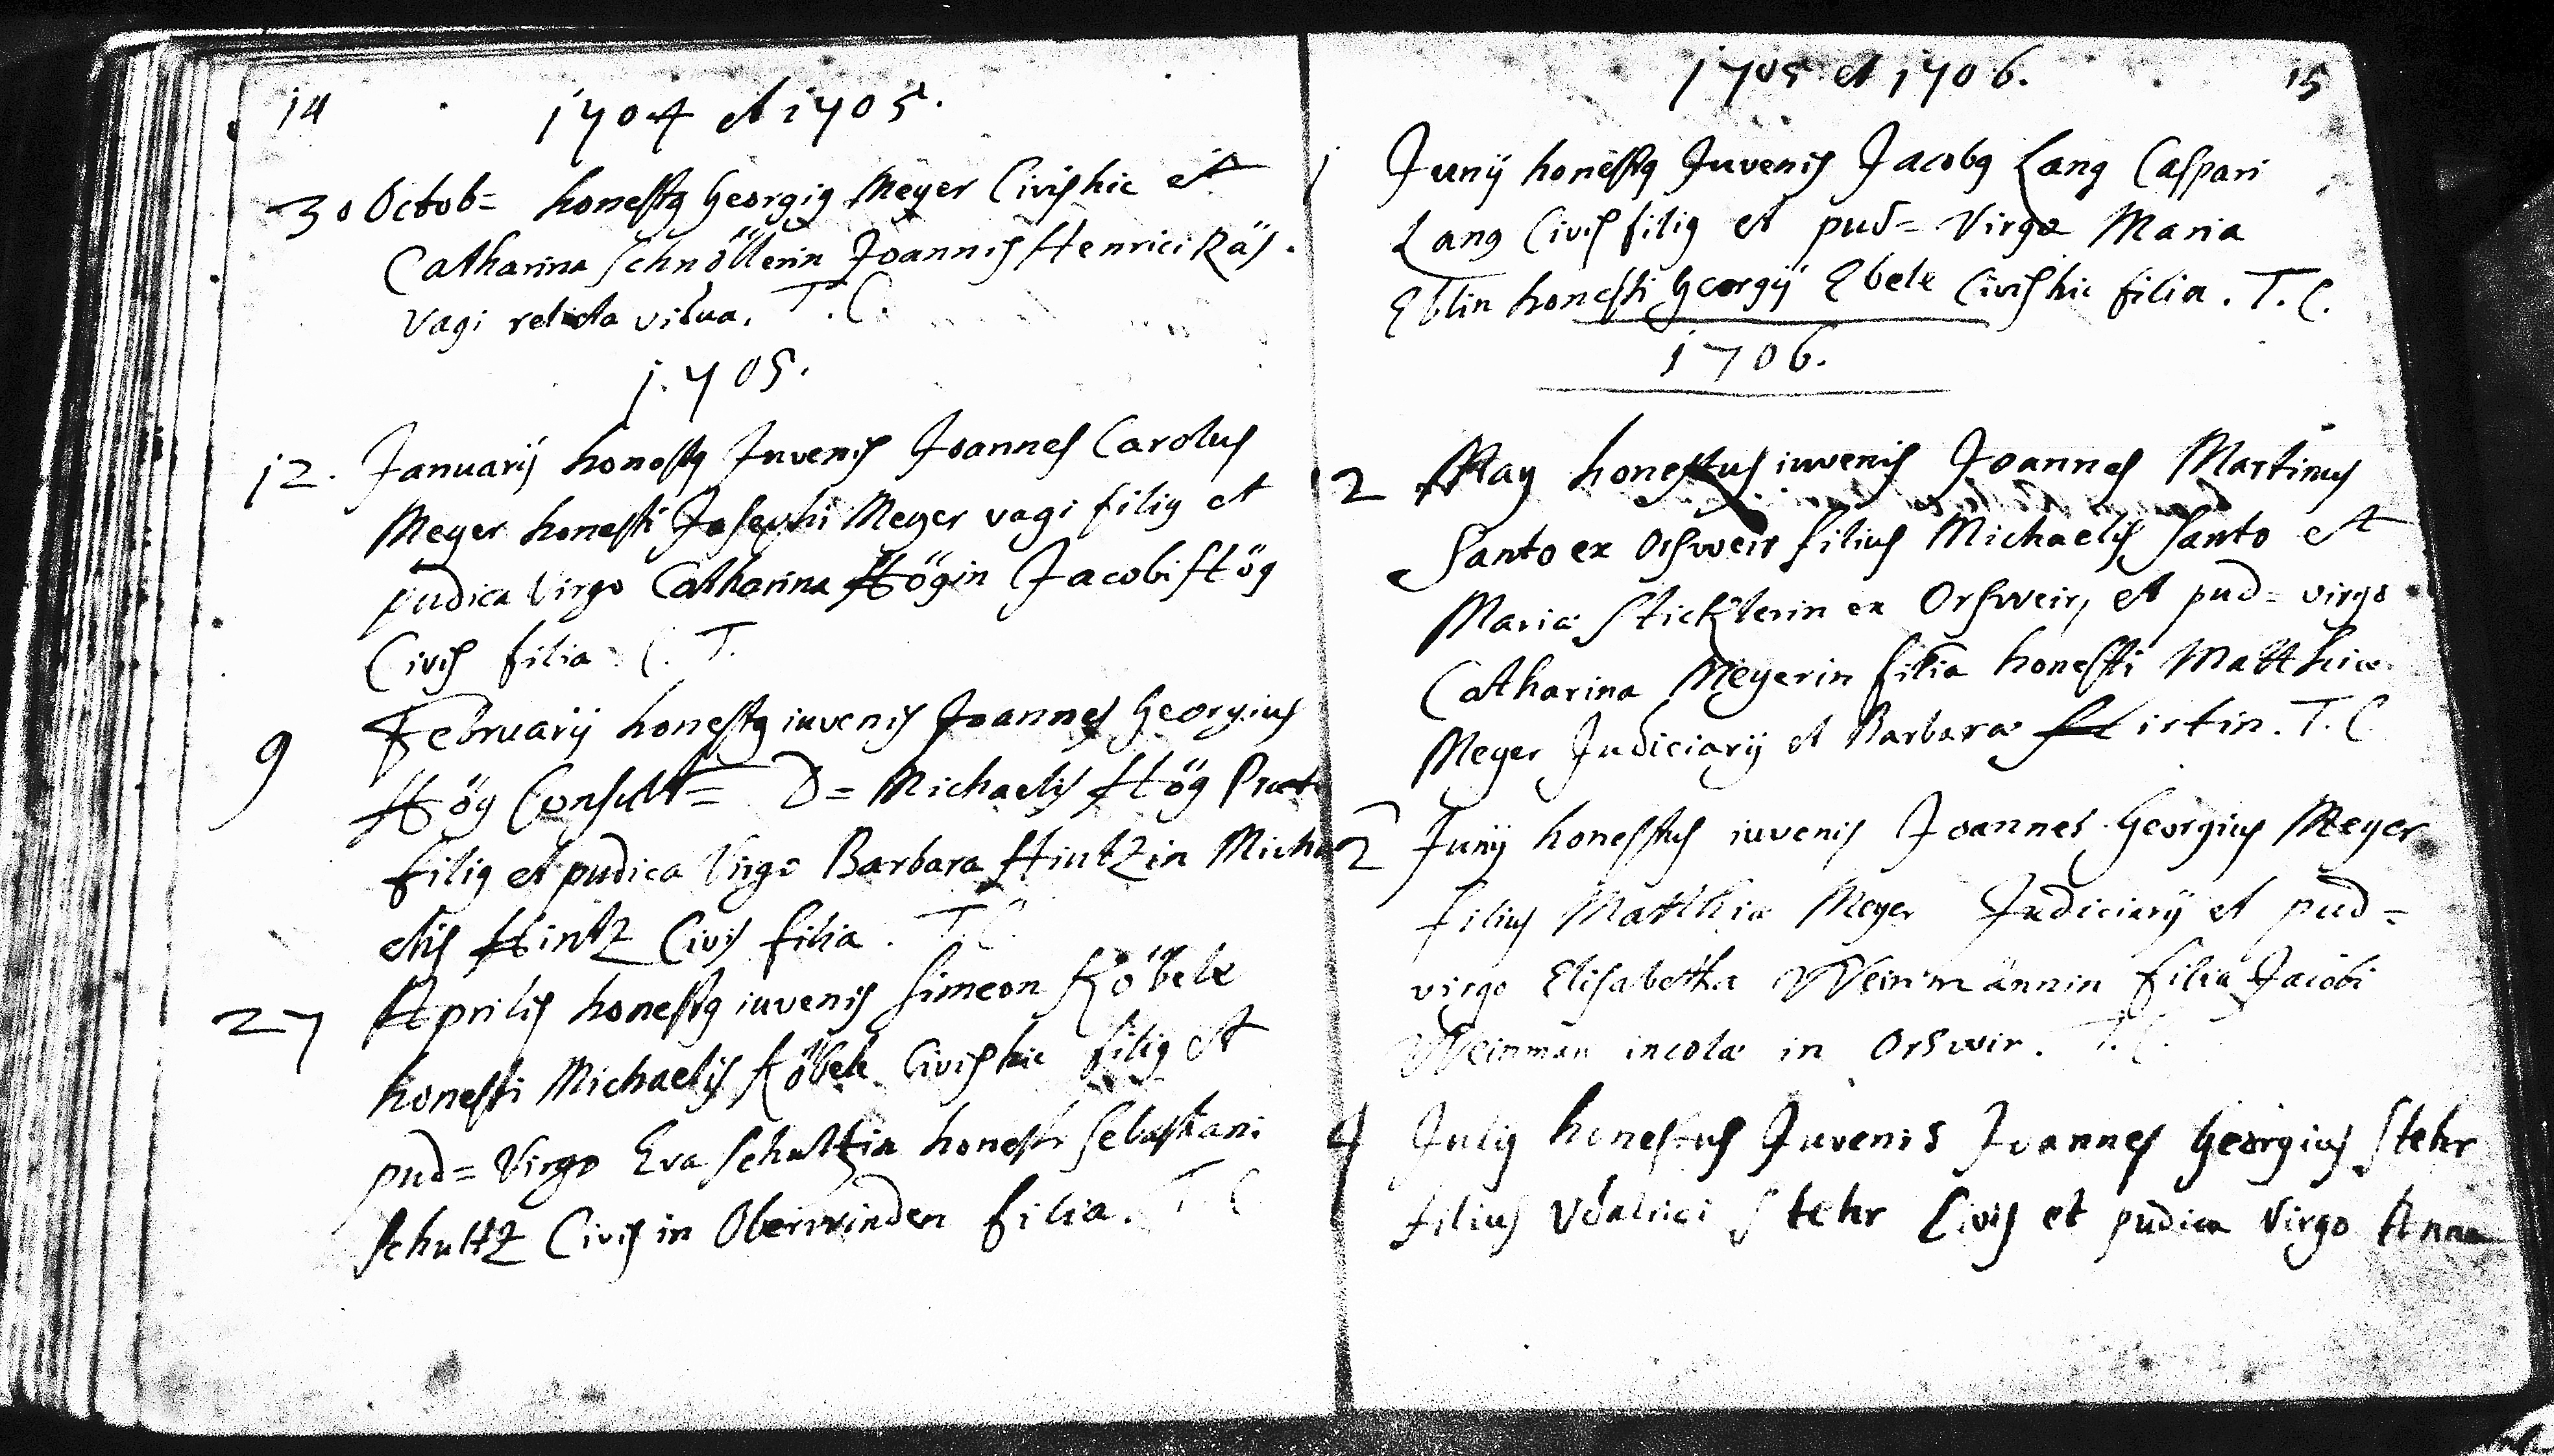 14
1704 et 1705.
30 Octob= honestꝰ Georgiꝰ Meyer Civis hic et
Catharina Schnöllerin Joannis Henrici Räs.
vagi relicta vidua. T. C.
1705.
12. Januarij honestꝰ Juvenis Joannes Carolus
Meyer honesti Josephi Meyer vagi filiꝰ et
pudica Virgo Catharina Högin Jacobi Hög
Civis filia C. T.
9 Februarij honestꝰ iuvenis Joannes Georgius
Hög Consult= D= Michaelis Hög Praet
filiꝰ et pudica Virgo Barbara Hintzin Micha
elis Hintz Civis filia. T. C.
27 Aprilis honestꝰ iuvenis Simeon Köbele
honesti Michaelis Köbele Civis hic filiꝰ et
pud= Virgo Eva Schultzin honesti Sebastiani
Schultz Civis in Oberwinden filia. T. C
1705 et 1706. 15
1 Junij honestꝰ Juvenis Jacobꝰ Lang Caspari
Lang Civis filiꝰ et pud= Virgo Maria
Eblin honesti Georgij Ebele Civis hic filia. T. C.
1706.
2 May honestus iuvenis Joannes Martinus
Santo ex Orsweir filius Michaelis Santo et
Maria Sticklerin ex Orsweir, et pud= virgo
Catharina Meyerin filia honesti Matthiæ
Meyer Judiciarij et Barbaræ Hirtin. T. C
2 Junij honestus iuvenis Joannes Georgius Meyer
filius Matthiæ Meyer Judiciarij et pud=
virgo Elisabetha Weinmännin filia Jacobi
Weinman incolæ in Orswir. T. C.
4 Julij honestus Juvenis Joannes Georgius Stehr
filius Vdalrici Stehr Civis et pudica Virgo Anna